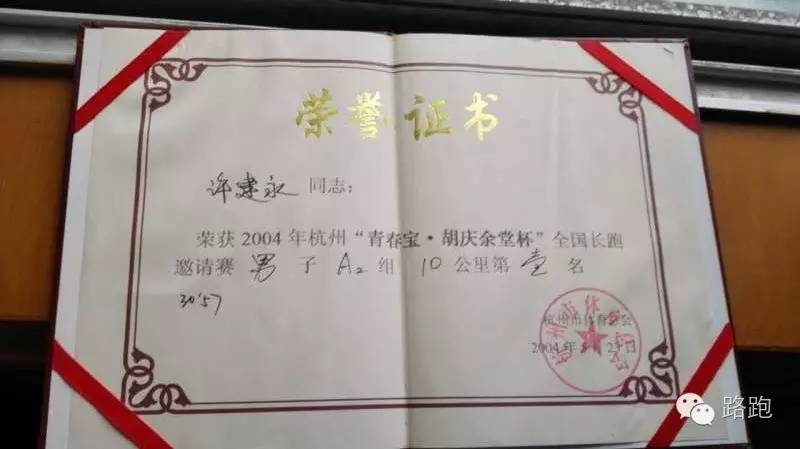 荣誉证书
许建永 同志：
荣获2004年杭州“青春宝·胡庆余堂杯”全国长跑
邀请赛 男 子 A2 组 10 公里第 壹 名
30'57
杭州市体育总会
2004年 月23日
路跑